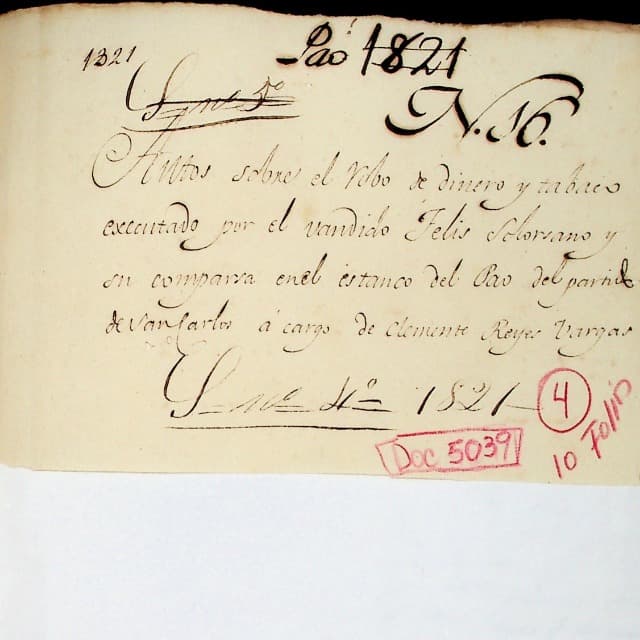 1821
Pao 1821
S. no. 5º
N. 16.
Autos sobre el Robo de dinero y tabaco
executado por el vandido Felis Solorsano y
su comparsa en el estanco del Pao del partido
de San Carlos á cargo de Clemente Reyes Vargas
S. no. 4º 1821
4
Doc 5039
10 Folios